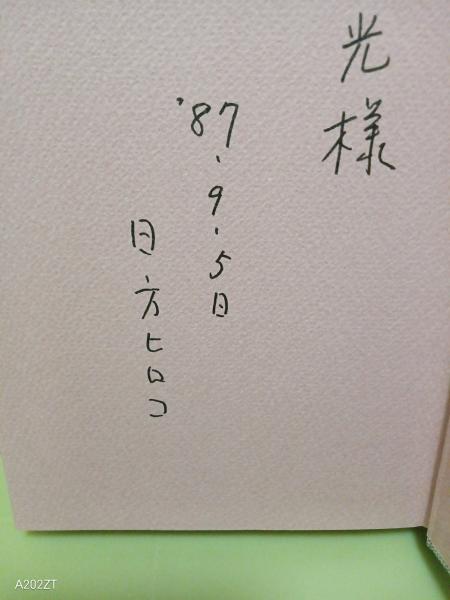 光様
'87.9.5日
日方ヒロコ
A202ZT